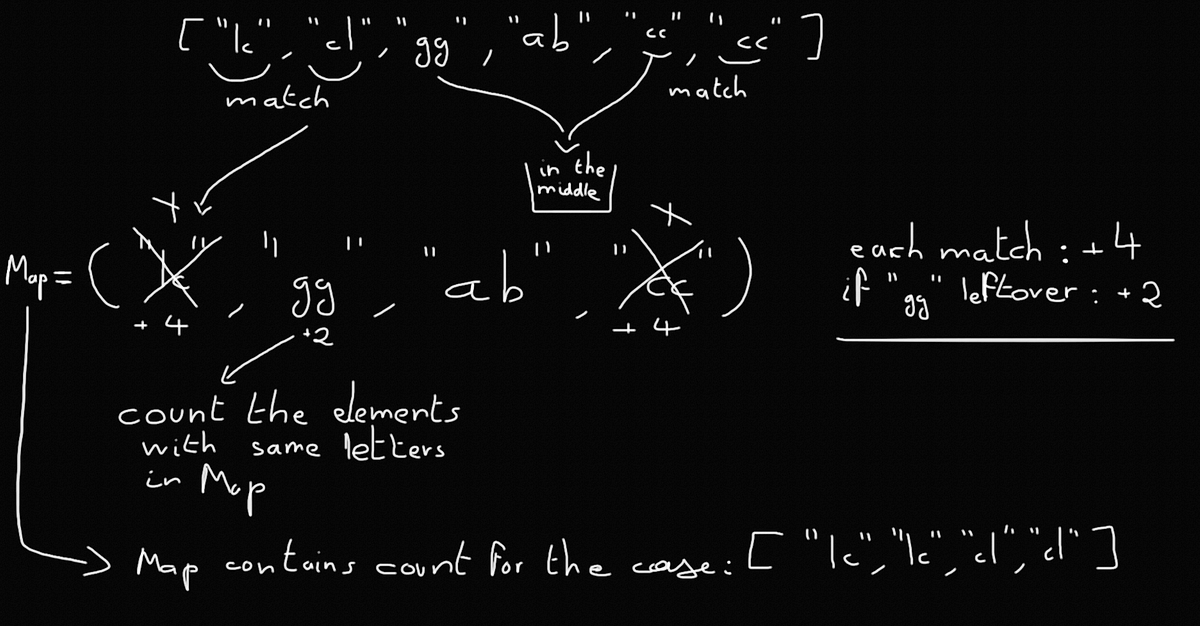 ["lc", "cl", "gg", "ab", "cc", "cc"]
match
match
in the
middle
x
x
Map = ("lc", "gg", "ab", "cc")
+ 4
+2
+ 4
each match : + 4
if "gg" leftover : + 2
count the elements
with same letters
in Map
Map contains count for the case: ["lc", "lc", "cl", "cl"]